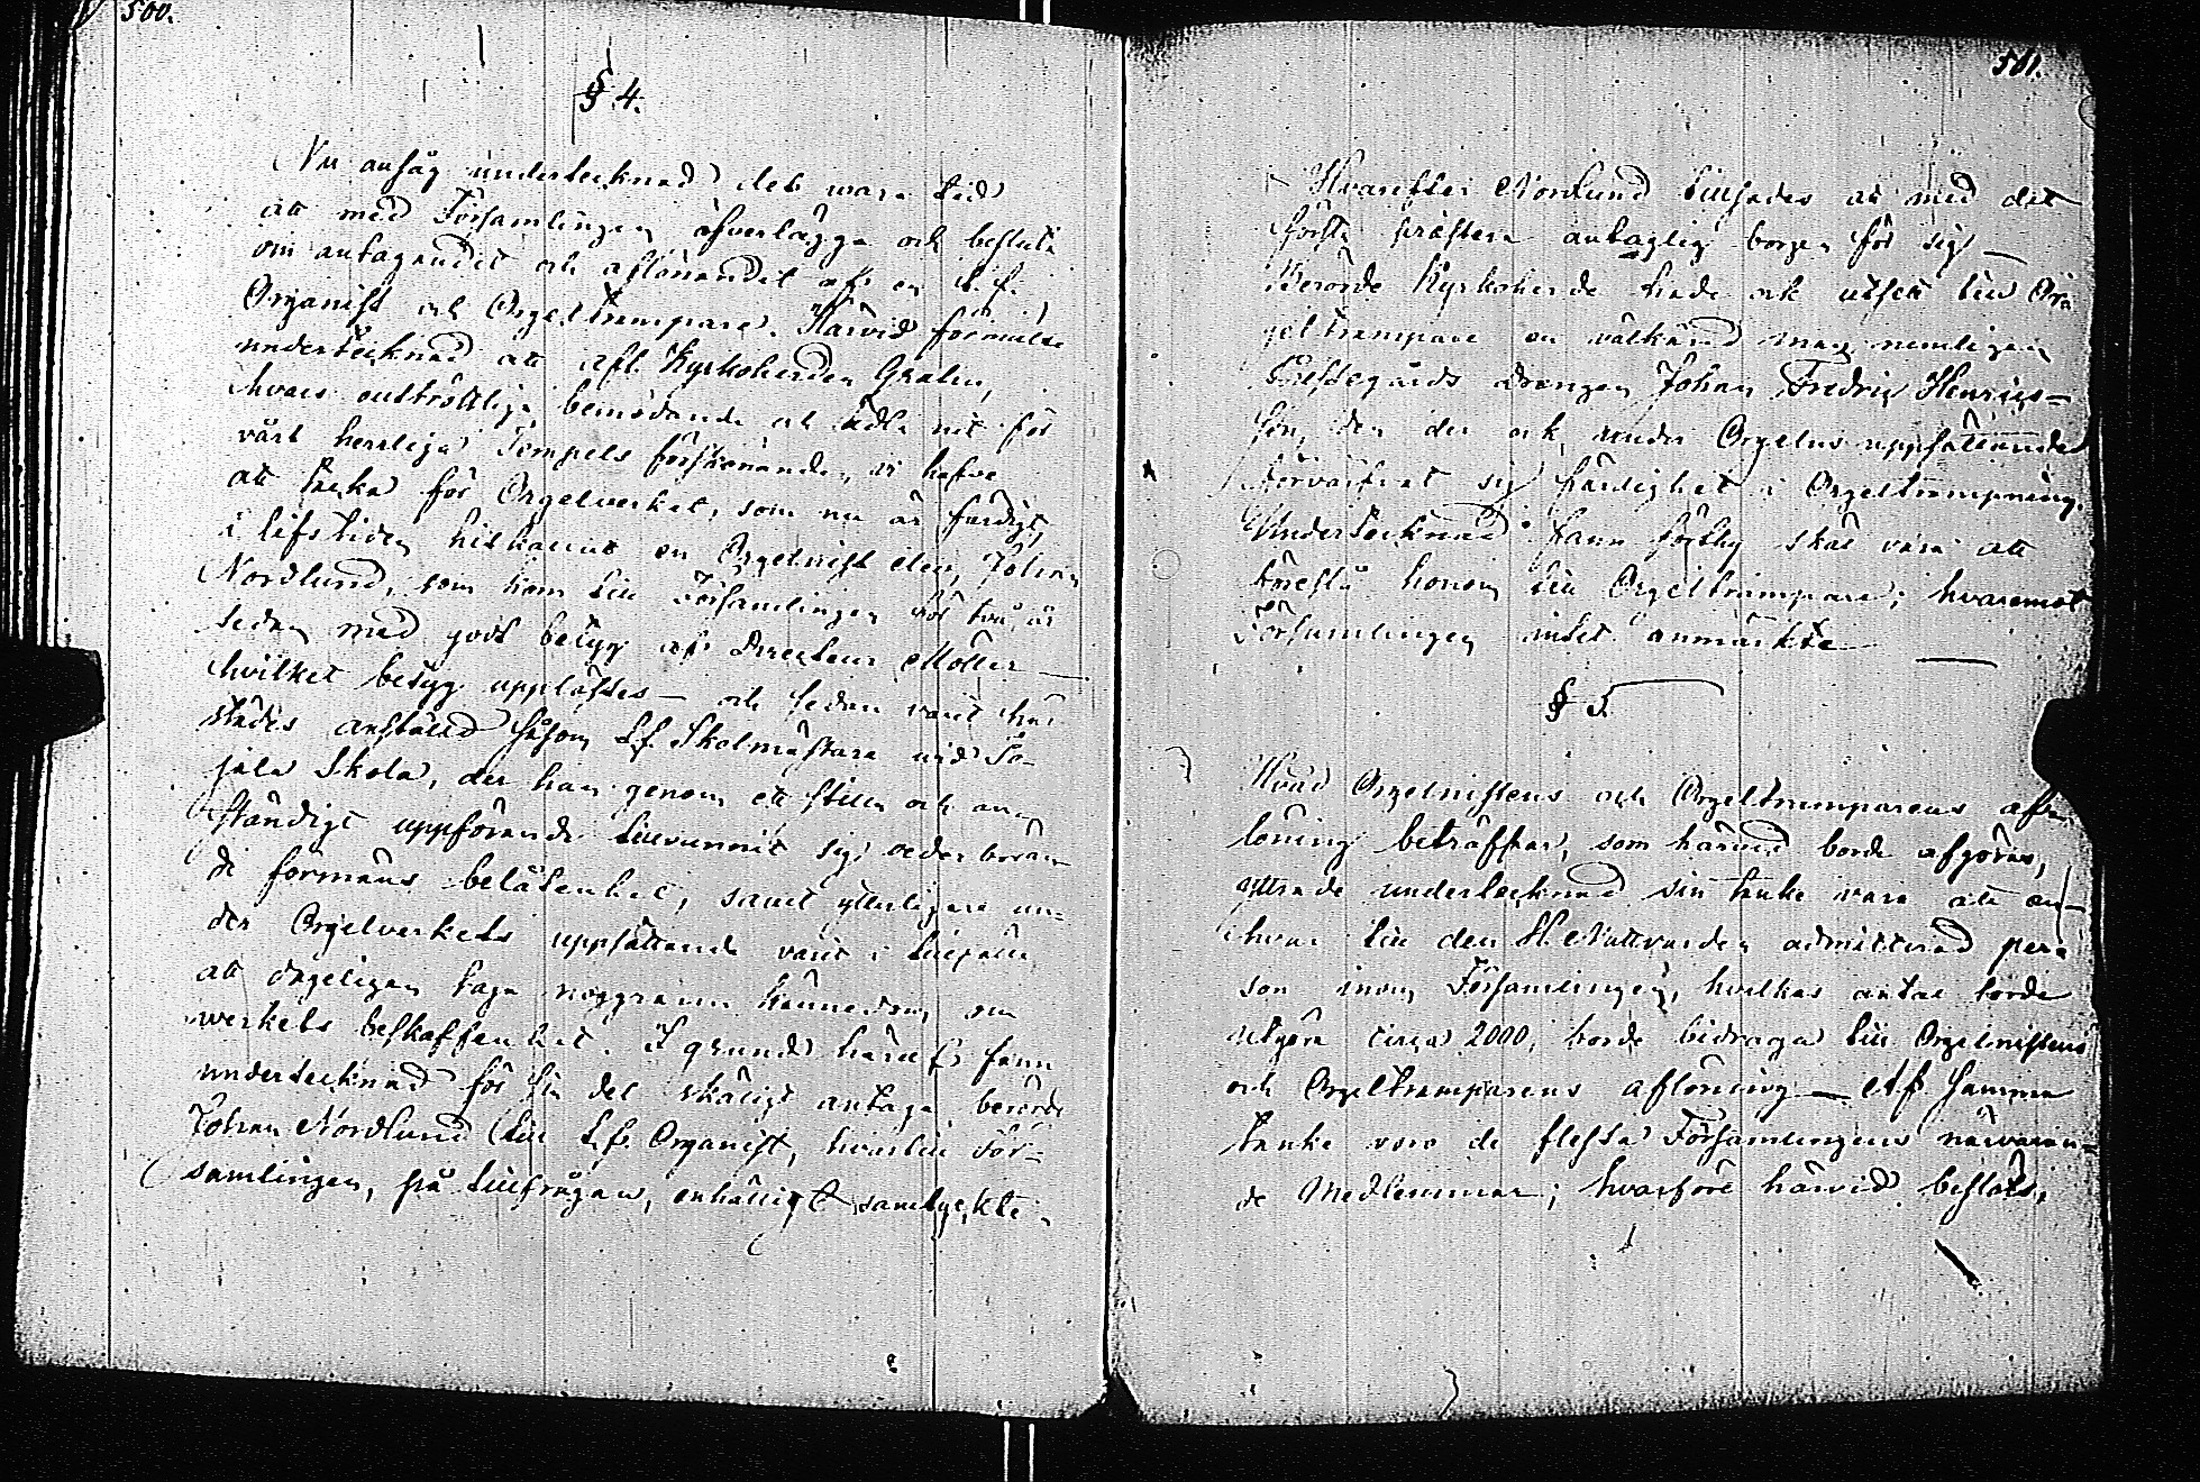 500.
§ 4.
Nu ansåg undertecknad det vara tid
att med Församlingen öfverlägga och besluta
om antagandet och aflönandet af en t. f.
Organist och Orgeltrampare. Härvid förmälte
undertecknad att afl. Kyrkoherden Gralin,
hvars outtröttliga bemödande och ädla nit för
vårt herrliga Tempels förskönande, vi hafva
att tacka för Orgelverket, som nu är färdigt,
i lifstiden hitkallat en Orgelnist elev, Johan
Nordlund, som kom till Församlingen för två år
sedan med godt betyg af Directeur Möller —
hvilket betyg upplästes — och sedan varit här-
städes anställd såsom t.f. Skolmästare vid So-
jala Skola, der han genom ett stilla och an-
ständigt uppförande tillvunnit sig vederböran-
de förmäns belåtenhet, samt ytterligare un-
der Orgelverkets uppsättande varit i tillfälle
att dageligen taga noggrann kännedom om
verkets beskaffenhet. I grund häraf fann
undertecknad för sin del skäligt antaga berörde
Johan Nordlund till t.f. Organist, hvartill För-
samlingen, på tillfrågan, enhälligt samtyckte.
501.
Hvarefter Nordlund tillsades att med det
första prästera antaglig borgen för sig —
Berörde Kyrkoherde hade ock utsett till Or-
geltrampare en välkänd man, nemligen
Prestegårds drängen Johan Fredrik Henrics-
son, den der ock under Orgelns uppsättande
förvärfvat sig färdighet i Orgeltrampning.
Undertecknad fann förthy skäl vara att
föreslå honom till Orgeltrampare; hvaremot
Församlingen intet anmärkte —
§ 5.
Hvad Orgelnistens och Orgeltramparens af-
löning beträffar, som härvid borde afgöras,
yttrade undertecknad sin tanke vara att en-
hvar till den H. Nattvarden admitterad per-
son inom Församlingen, hvilkas antal torde
utgöra circa 2000, borde bidraga till Orgelnistens
och Orgeltramparens aflöning — Af samma
tanke voro de flesta Församlingens närvaran-
de Medlemmar; hvarföre härvid beslöts,